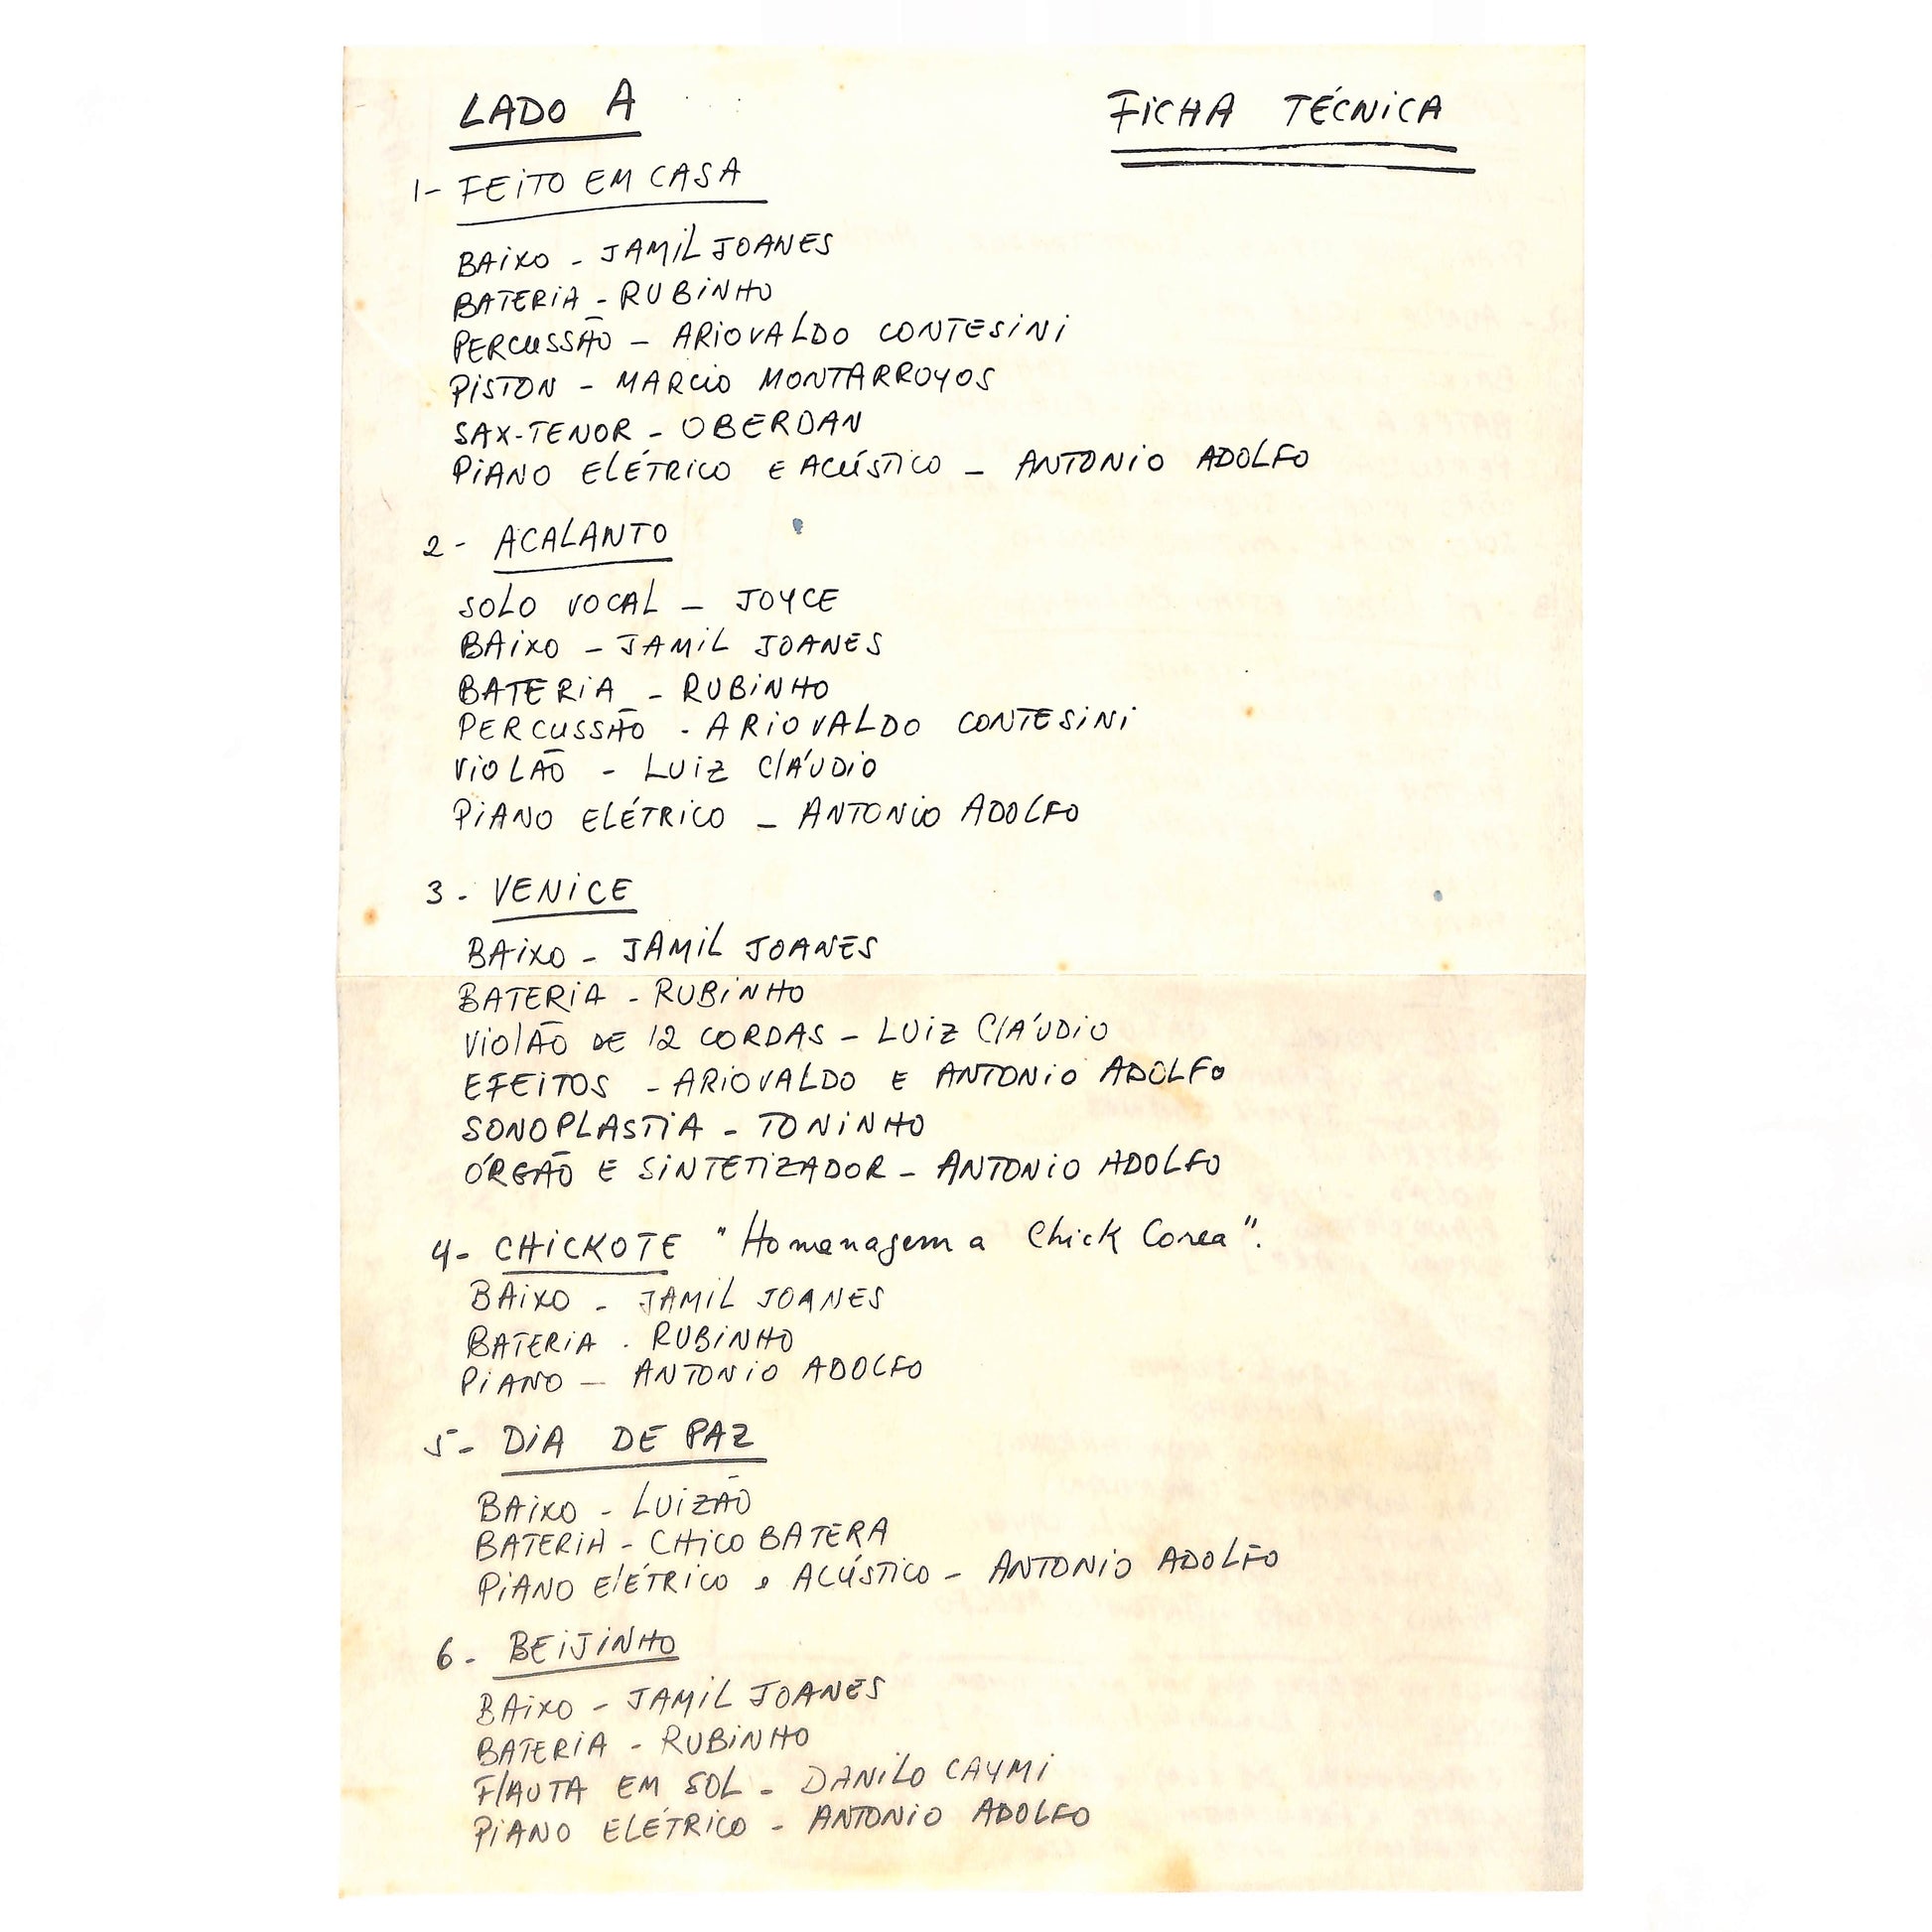 LADO A
FICHA TÉCNICA
1- FEITO EM CASA
BAIXO - JAMIL JOANES
BATERIA - RUBINHO
PERCUSSÃO - ARIOVALDO CONTESINI
PISTON - MARCIO MONTARROYOS
SAX-TENOR - OBERDAN
PIANO ELÉTRICO E ACÚSTICO - ANTONIO ADOLFO
2- ACALANTO
SOLO VOCAL - JOYCE
BAIXO - JAMIL JOANES
BATERIA - RUBINHO
PERCUSSÃO - ARIOVALDO CONTESINI
VIOLÃO - LUIZ CLÁUDIO
PIANO ELÉTRICO - ANTONIO ADOLFO
3- VENICE
BAIXO - JAMIL JOANES
BATERIA - RUBINHO
VIOLÃO DE 12 CORDAS - LUIZ CLÁUDIO
EFEITOS - ARIOVALDO E ANTONIO ADOLFO
SONOPLASTIA - TONINHO
ÓRGÃO E SINTETIZADOR - ANTONIO ADOLFO
4- CHICKOTE "Homenagem a Chick Corea".
BAIXO - JAMIL JOANES
BATERIA - RUBINHO
PIANO - ANTONIO ADOLFO
5- DIA DE PAZ
BAIXO - LUIZÃO
BATERIA - CHICO BATERA
PIANO ELÉTRICO e ACÚSTICO - ANTONIO ADOLFO
6- BEIJINHO
BAIXO - JAMIL JOANES
BATERIA - RUBINHO
FLAUTA EM SOL - DANILO CAYMI
PIANO ELÉTRICO - ANTONIO ADOLFO